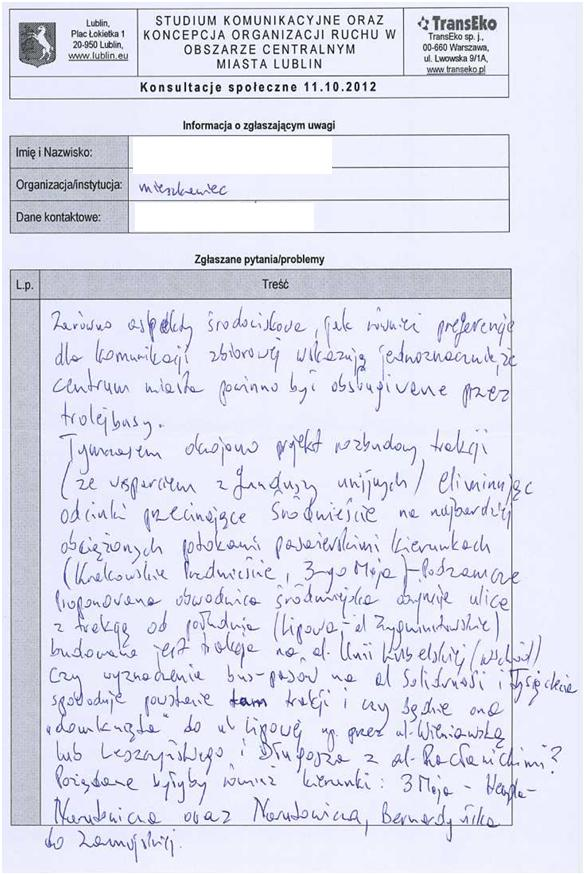 Lublin,
Plac Łokietka 1
20-950 Lublin,
www.lublin.eu
STUDIUM KOMUNIKACYJNE ORAZ
KONCEPCJA ORGANIZACJI RUCHU W
OBSZARZE CENTRALNYM
MIASTA LUBLIN
TransEko
TransEko sp. j.,
00-660 Warszawa,
ul. Lwowska 9/1A,
www.transeko.pl
Konsultacje społeczne 11.10.2012
Informacja o zgłaszającym uwagi
Imię i Nazwisko:
Organizacja/instytucja: mieszkaniec
Dane kontaktowe:
Zgłaszane pytania/problemy
L.p. Treść
Zarówno aspekty środowiskowe, jak również preferencje
dla komunikacji zbiorowej wskazują jednoznacznie, że
centrum miasta powinno być obsługiwane przez
trolejbusy.
Tymczasem okrojono projekt rozbudowy trakcji
(ze wsparciem z funduszy unijnych) eliminując
odcinki przecinające Śródmieście na najbardziej
obciążonych potokami pasażerskimi kierunkach
(Krakowskie Przedmieście, 3-go Maja) - Podzamcze
Proponowana obwodnica śródmiejska obejmuje ulice
z trakcją od południa (Lipowa - al Zygmuntowskie)
budowana jest trakcja na al. Unii Lubelskiej (wschód)
Czy wyznaczenie bus-pasów na al Solidarności i Tysiąclecia
spowoduje powstanie tam trakcji i czy będzie ona
"domknięta" do ul Lipowej np. przez ul. Wieniawską
lub Leszczyńskiego i Długosza z al. Racławickimi?
Pożądane byłyby również kierunki: 3 Maja - Hempla -
Narutowicza oraz Narutowicza, Bernardyńska
do Zamojskiej.